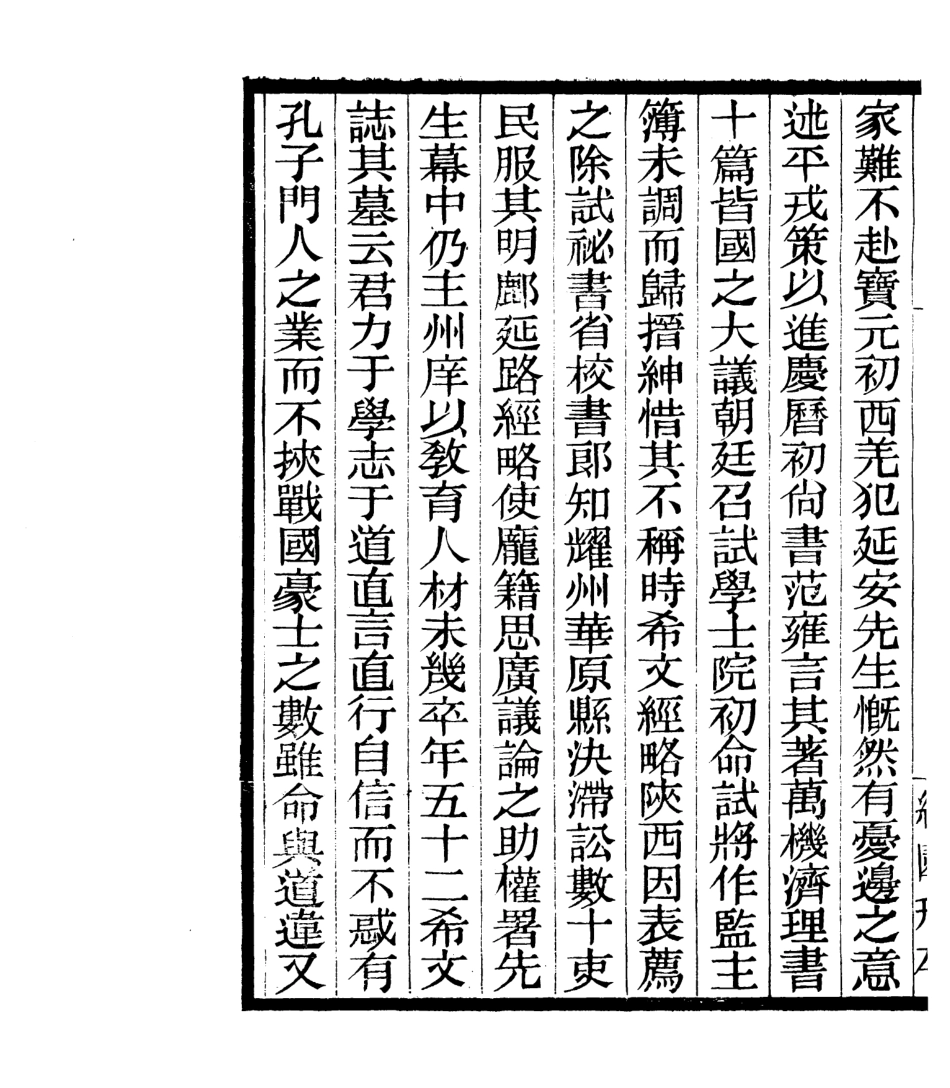 家難不赴寶元初西羌犯延安先生慨然有憂邊之意
述平戎策以進慶曆初尙書范雍言其著萬機濟理書
十篇皆國之大議朝廷召試學士院初命試將作監主
簿未調而歸搢紳惜其不稱時希文經略陝西因表薦
之除試祕書省校書郎知耀州華原縣決滯訟數十吏
民服其明鄜延路經略使龐籍思廣議論之助權署先
生幕中仍主州庠以敎育人材未幾卒年五十二希文
誌其墓云君力于學志于道直言直行自信而不惑有
孔子門人之業而不挾戰國豪士之數雖命與道違又